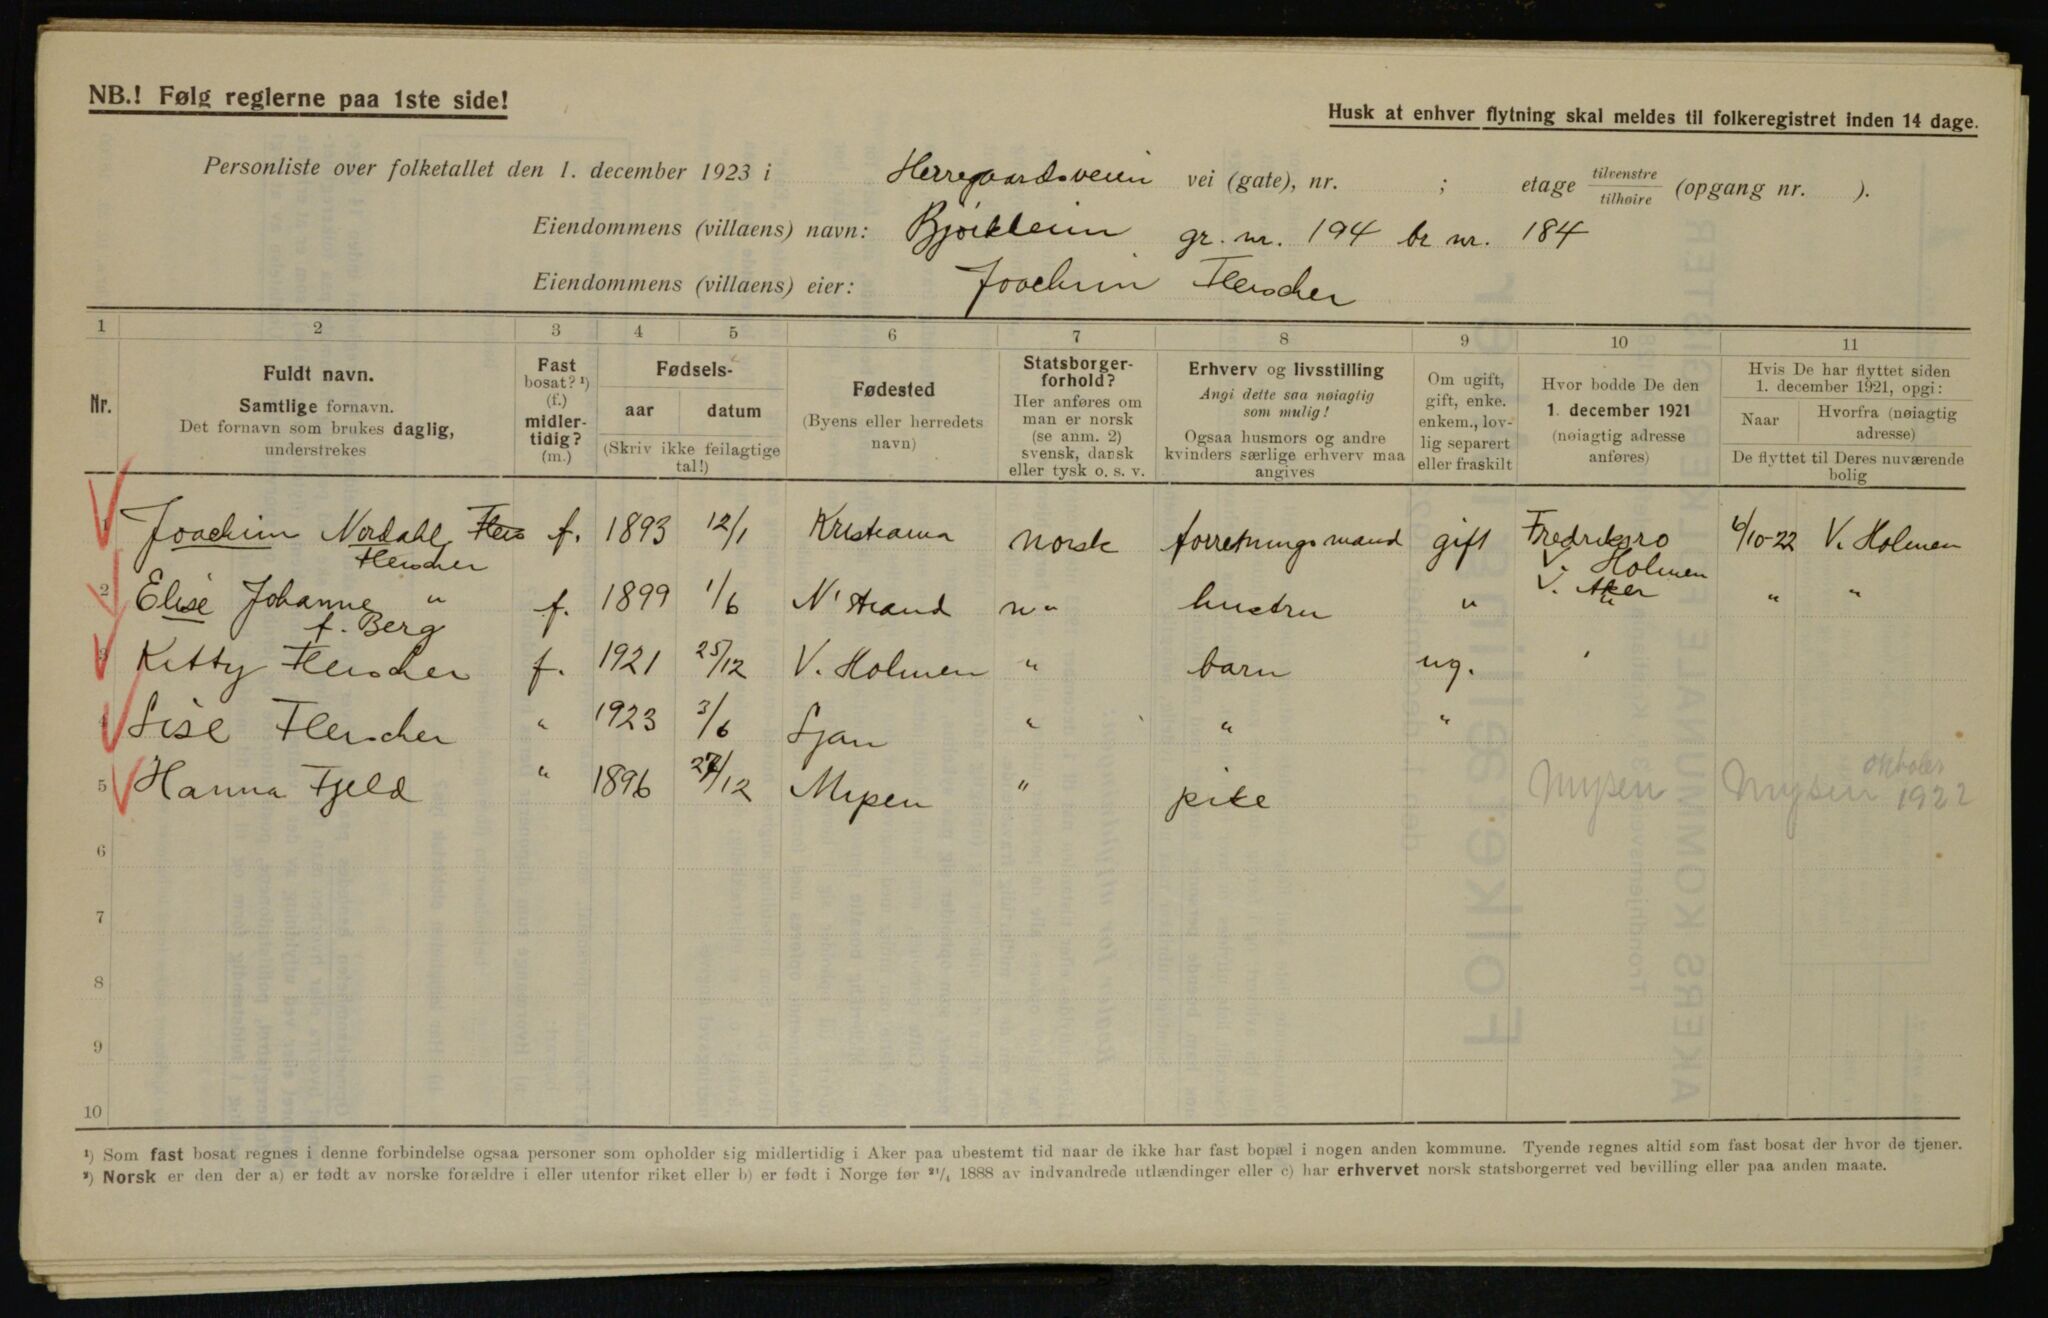 NB.! Følg reglerne paa 1ste side!
Husk at enhver flytning skal meldes til folkeregistret inden 14 dage.
Personliste over folketallet den 1. december 1923 i Herregaardsveien vei (gate), nr. ; etage tilvenstre/tilhøire (opgang nr. ).
Eiendommens (villaens) navn: Bjørkheim gr. nr. 194 br nr. 184
Eiendommens (villaens) eier: Joachim Fleischer
1 2 3 4 5 6 7 8 9 10 11
Nr.
Fuldt navn.
Samtlige fornavn.
Det fornavn som brukes daglig,
understrekes
Fast
bosat? ¹)
(f.)
midler-
tidig?
(m.)
Fødsels-
aar datum
(Skriv ikke feilagtige
tal!)
Fødested
(Byens eller herredets
navn)
Statsborger-
forhold?
Her anføres om
man er norsk
(se anm. 2)
svensk, dansk
eller tysk o. s. v.
Erhverv og livsstilling
Angi dette saa nøiagtig
som mulig!
Ogsaa husmors og andre
kvinders særlige erhverv maa
angives
Om ugift,
gift, enke.
enkem., lov-
lig separert
eller fraskilt
Hvor bodde De den
1. december 1921
(nøiagtig adresse
anføres)
Hvis De har flyttet siden
1. december 1921, opgi:
Naar
Hvorfra (nøiagtig
adresse)
De flyttet til Deres nuværende
bolig
1 Joachim Nordahl Fleis f. 1893 12/1 Kristiania norsk forretningsmand gift Fredriksro 6/10-22 V. Holmen
Fleischer V. Holmen
2 Elise Johanne " f. 1899 1/6 N' strand n " hustru " V. Aker " "
f. Berg "
3 Kitty Fleischer f. 1921 25/12 V. Holmen " barn ug.
4 Lise Fleischer " 1923 3/6 Ljan " " "
5 Hanna Fjeld " 1896 27/12 Mysen " pike Mysen Mysen oktober
1922
6
7
8
9
10
¹) Som fast bosat regnes i denne forbindelse ogsaa personer som opholder sig midlertidig i Aker paa ubestemt tid naar de ikke har fast bopæl i nogen anden kommune. Tyende regnes altid som fast bosat der hvor de tjener.
²) Norsk er den der a) er født av norske forældre i eller utenfor riket eller b) er født i Norge før ²¹/₄ 1888 av indvandrede utlændinger eller c) har erhvervet norsk statsborgerret ved bevilling eller paa anden maate.